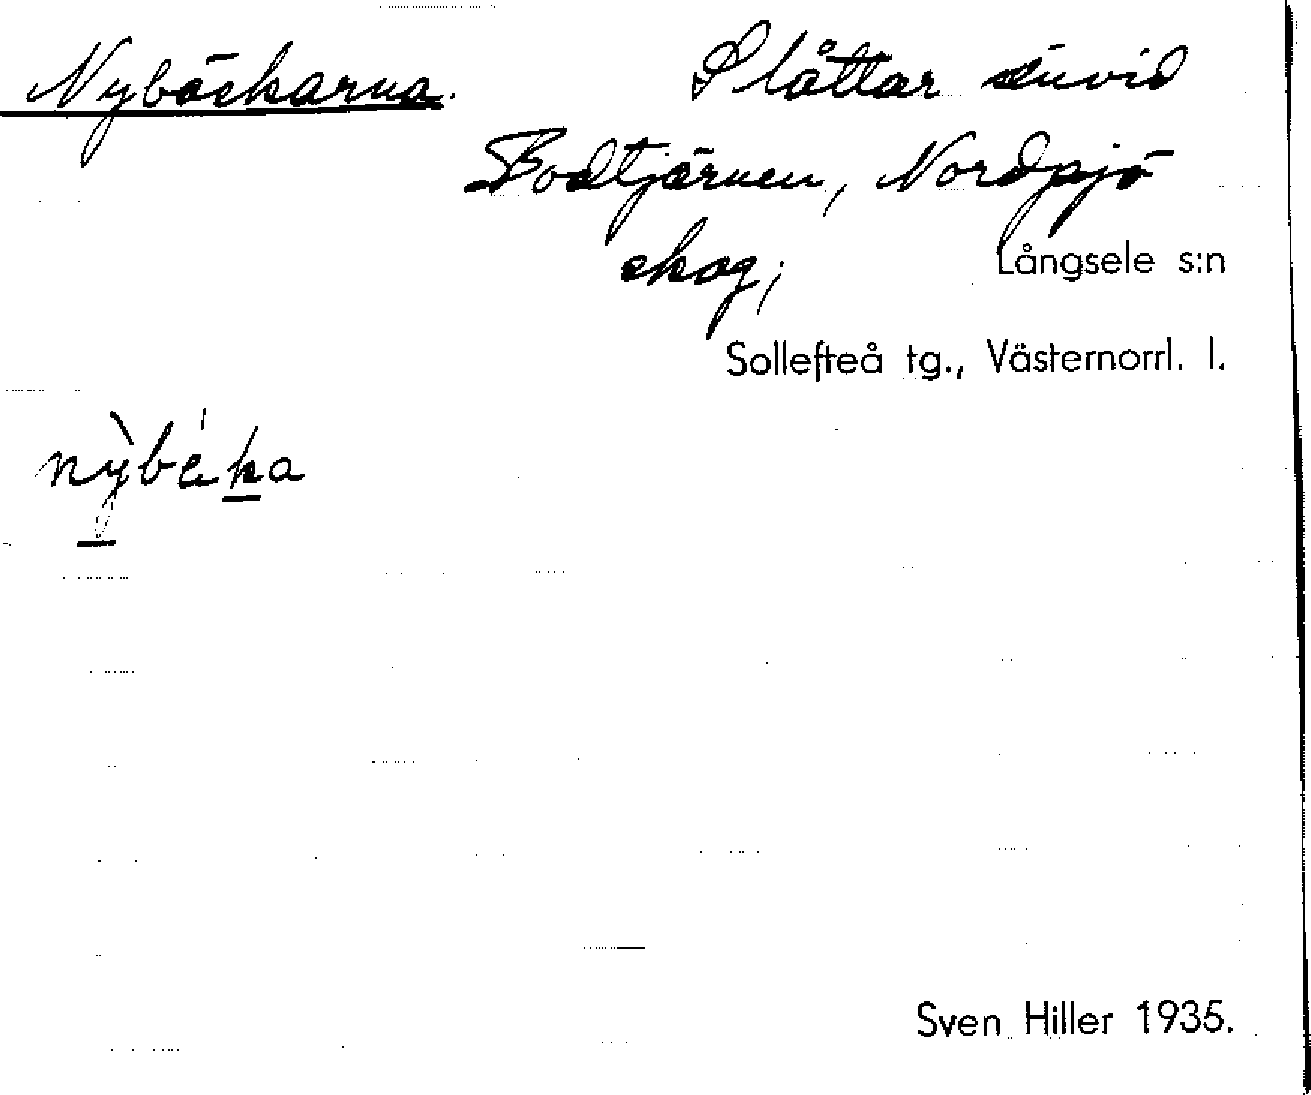 Nybäckarna. Slåttar invid
Bodtjärnen, Nordsjö
skog,
Långsele s:n
Sollefteå tg., Västernorrl. l.
Sven Hiller 1935.